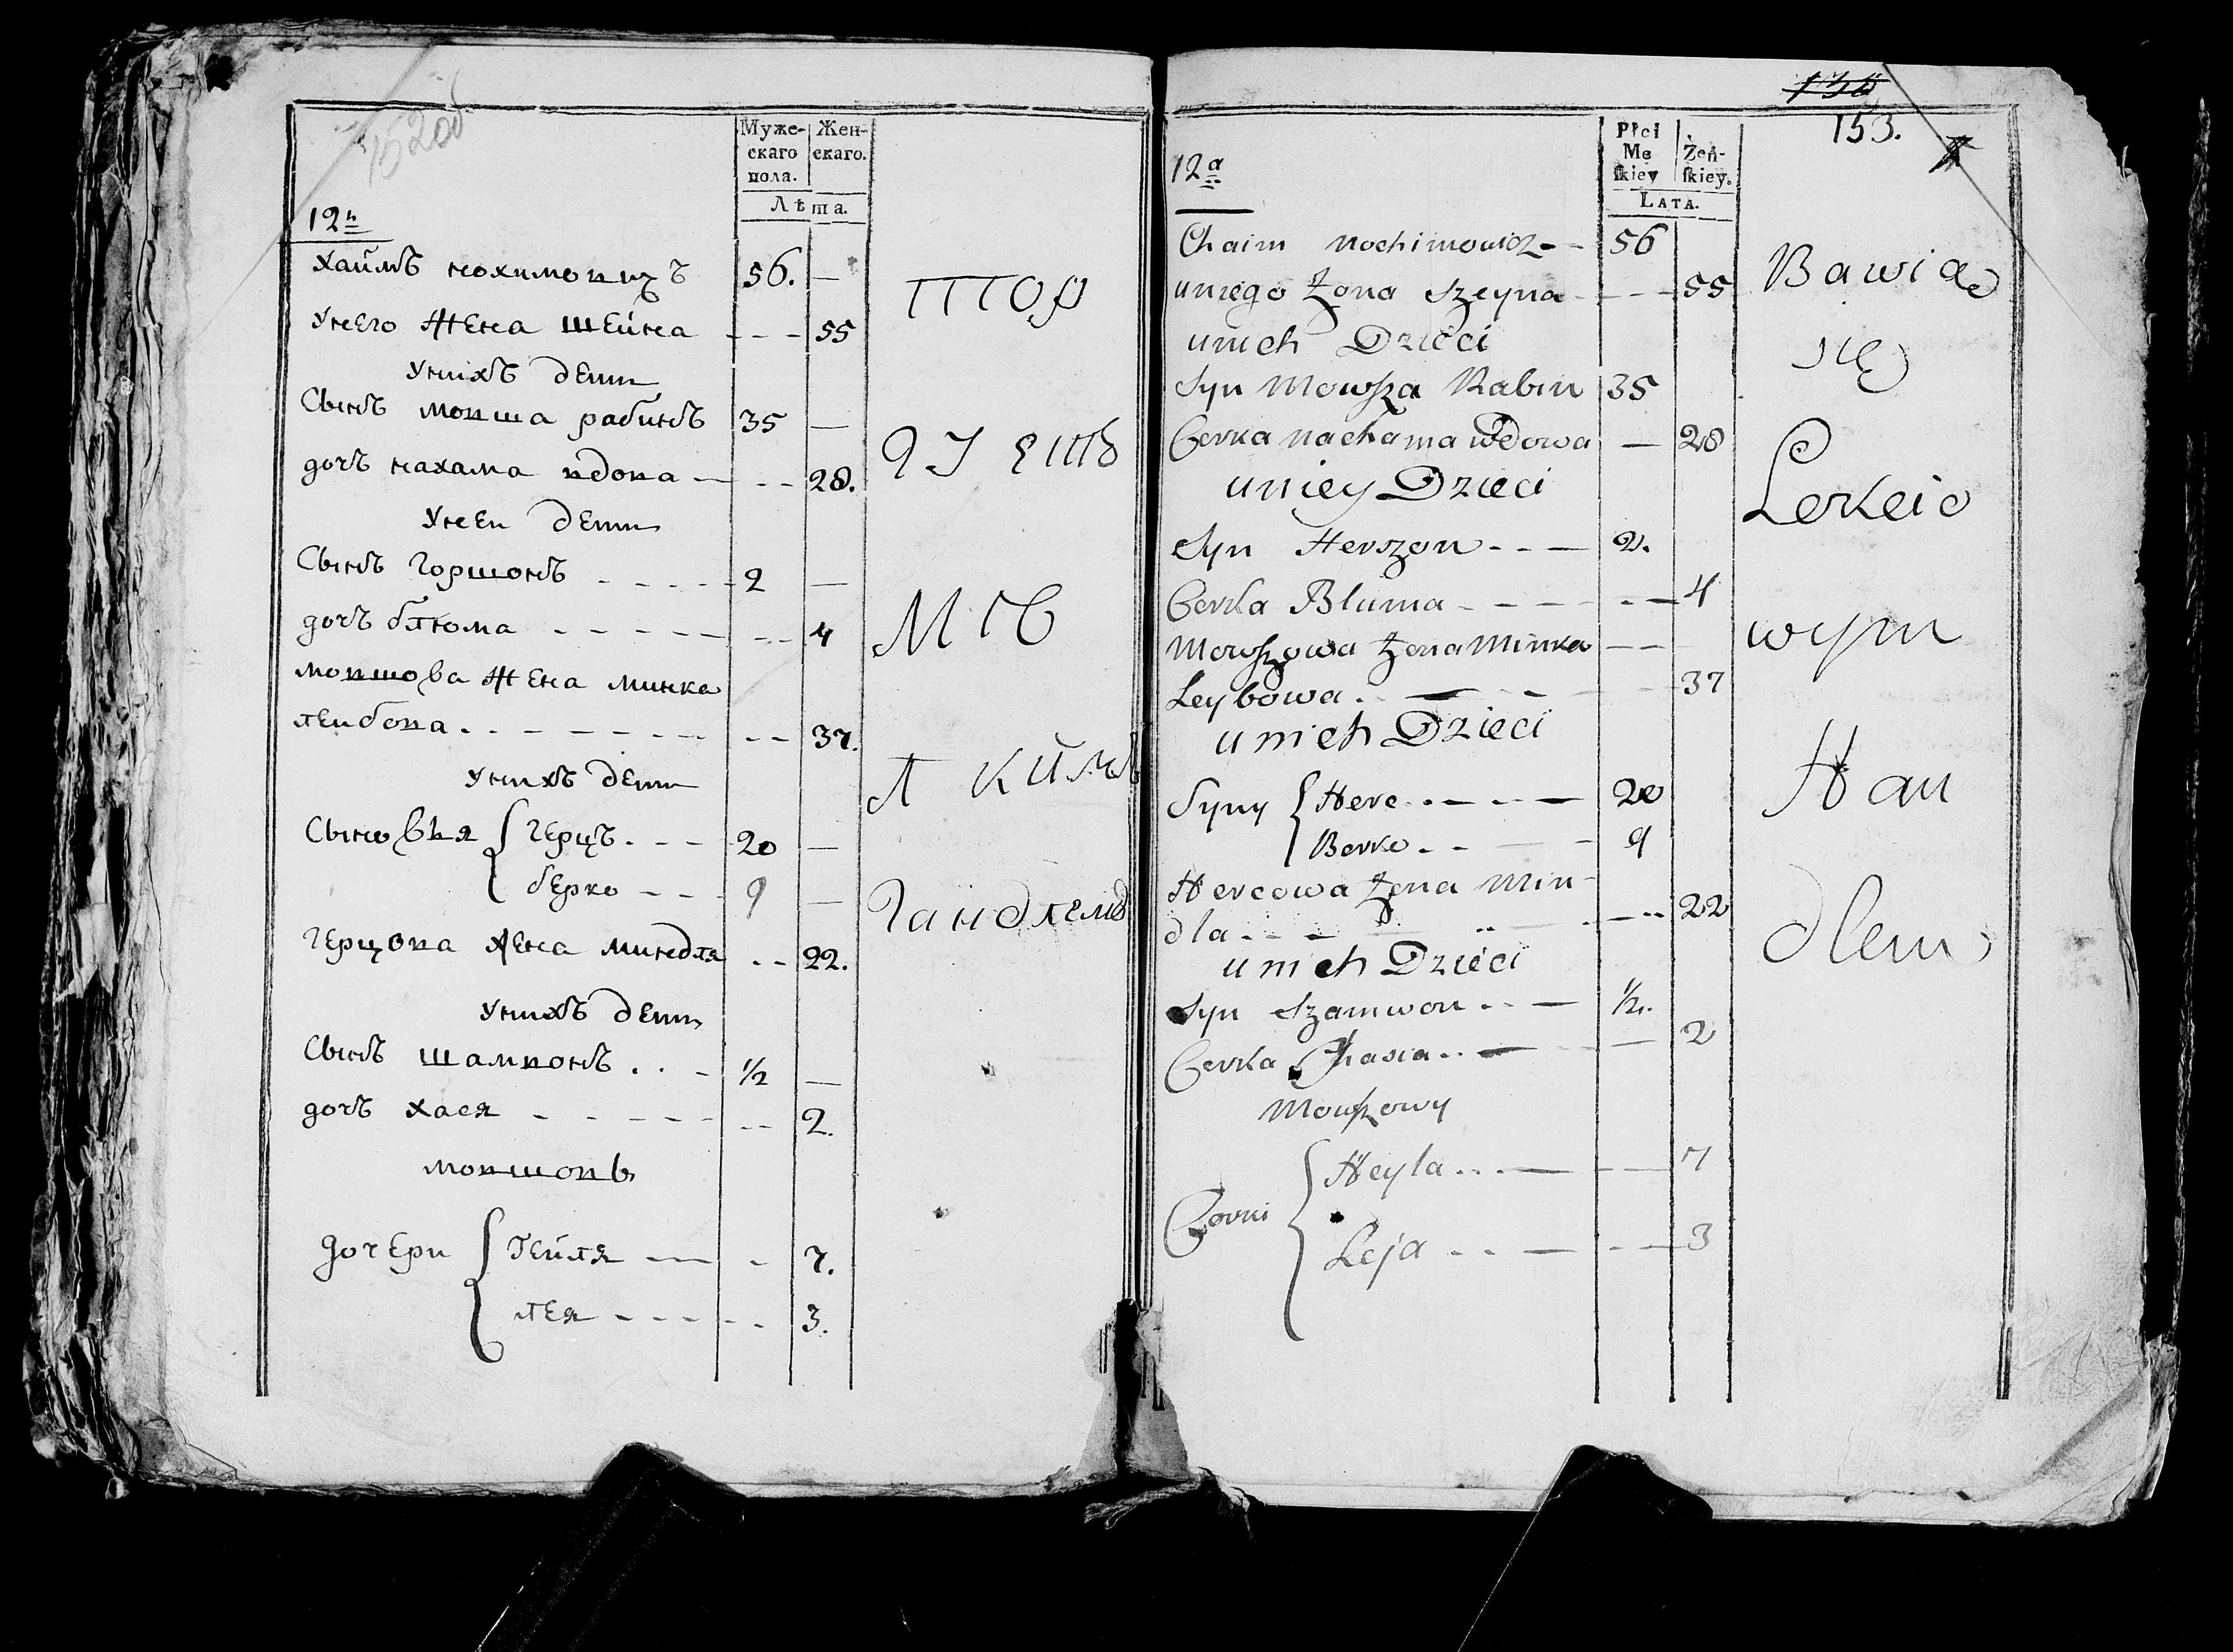 152об
Муже-
скаго
пола.
Жен-
скаго.
Лѣта.
12й
хаймъ нохимовичъ 56. —
унего жена шейна - - - 55
унихъ дети
сынъ мовша рабинъ 35 —
дочъ нахама вдова — - - 28.
унеи дети
сынъ горшонъ - - - - - 2 —
дочъ блюма - - - - - — - - 4
мовшова жена минка
леибова. . - - - - - - - - 37.
унихъ дети
сыновья { герцъ. - - - 20 —
берко - - - 9 —
герцова жена миндля - - 22.
унихъ дети
сынъ шамвонъ . . - ½ —
дочъ хася - - - - - - - 2.
мовшовы
дочери { гейля — - 7.
лея - - - - - - 3.
тор
гуетъ
мъ
л кимъ
гандлемъ
153.
Płci
Mę
skiey
Żeń-
skiey.
LATA.
12a
Chaim Nochimowicz - - 56
uniego Żona Szeyna - - - - 55
unich Dzieci
Syn Mowsza Rabin 35
Corka Nachama wdowa — 28
uniey Dzieci
Syn Herszon - - — 2.
Corka Bluma - - - - - - — 4
Mowszowa Żona Minka — —
Leybowa . - — - - - - 37
unich Dzieci
Syny { Herc . . — - - — 20
Berko . - - - 9
Hercowa Żona Min-
dla - - - - - - - 22
unich Dzieci
Syn Szamwon . . — ½.
Corka Chasia . . — - - 2
Mowszowy
Corki { Heyla . . . — - — 7
Leja . . - — - - — 3
Bawią
się
Lekcio
wym
Han
dlem